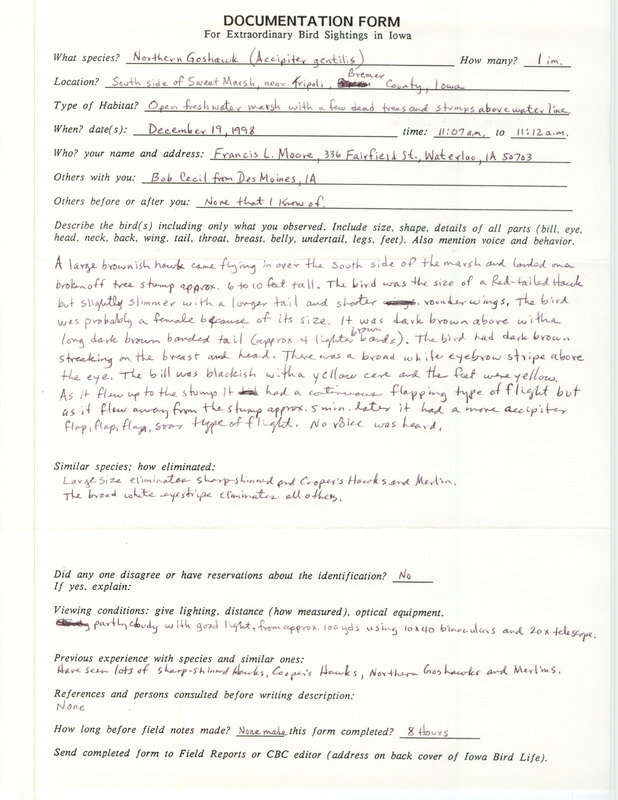 DOCUMENTATION FORM
For Extraordinary Bird Sightings in Iowa
What species? Northern Goshawk (Accipiter gentilis) How many? 1 im.
Location? South side of Sweet Marsh, near Tripoli, Bremer County, Iowa
Type of Habitat? Open freshwater marsh with a few dead trees and stumps above water line
When? date(s): December 19, 1998 time: 11:07 a.m. to 11:12 a.m.
Who? your name and address: Francis L. Moore, 336 Fairfield St., Waterloo, IA 50703
Others with you: Bob Cecil from Des Moines, IA
Others before or after you: None that I know of.
Describe the bird(s) including only what you observed. Include size, shape, details of all parts (bill, eye,
head, neck, back, wing, tail, throat, breast, belly, undertail, legs, feet). Also mention voice and behavior.
A large brownish hawk came flying in over the south side of the marsh and landed on a
broken off tree stump approx. 6 to 10 feet tall. The bird was the size of a Red-tailed Hawk
but slightly slimmer with a longer tail and shorter rounder wings. The bird
was probably a female because of its size. It was dark brown above with a
long dark brown banded tail (approx. 4 lighter brown bands). The bird had dark brown
streaking on the breast and head. There was a broad white eyebrow stripe above
the eye. The bill was blackish with a yellow cere and the feet were yellow.
As it flew up to the stump it had a continuous flapping type of flight but
as it flew away from the stump approx. 5 min. later it had a more accipiter
flap, flap, flap, soar type of flight. No voice was heard.
Similar species; how eliminated:
Large size eliminates sharp-shinned and Cooper's Hawks and Merlin.
The broad white eyestripe eliminates all others.
Did any one disagree or have reservations about the identification? No
If yes, explain:
Viewing conditions: give lighting, distance (how measured), optical equipment.
partly cloudy with good light, from approx 100 yds using 10x40 binoculars and 20x telescope.
Previous experience with species and similar ones:
Have seen lots of sharp-shinned Hawks, Cooper's Hawks, Northern Goshawks and Merlins.
References and persons consulted before writing description:
None
How long before field notes made? None made this form completed? 8 Hours
Send completed form to Field Reports or CBC editor (address on back cover of Iowa Bird Life).